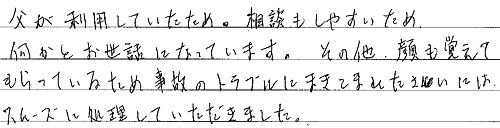 父が利用していたため。相談もしやすいため
何かとお世話になっています。その他、顔も覚えて
もらっているため事故のトラブルにまきこまれたさいには、
スムーズに処理していただきました。